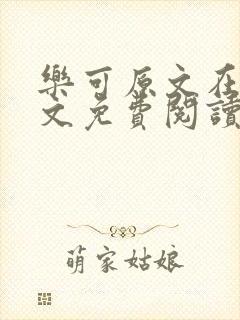 樂可原文在
文免費閱讀
萌家姑娘